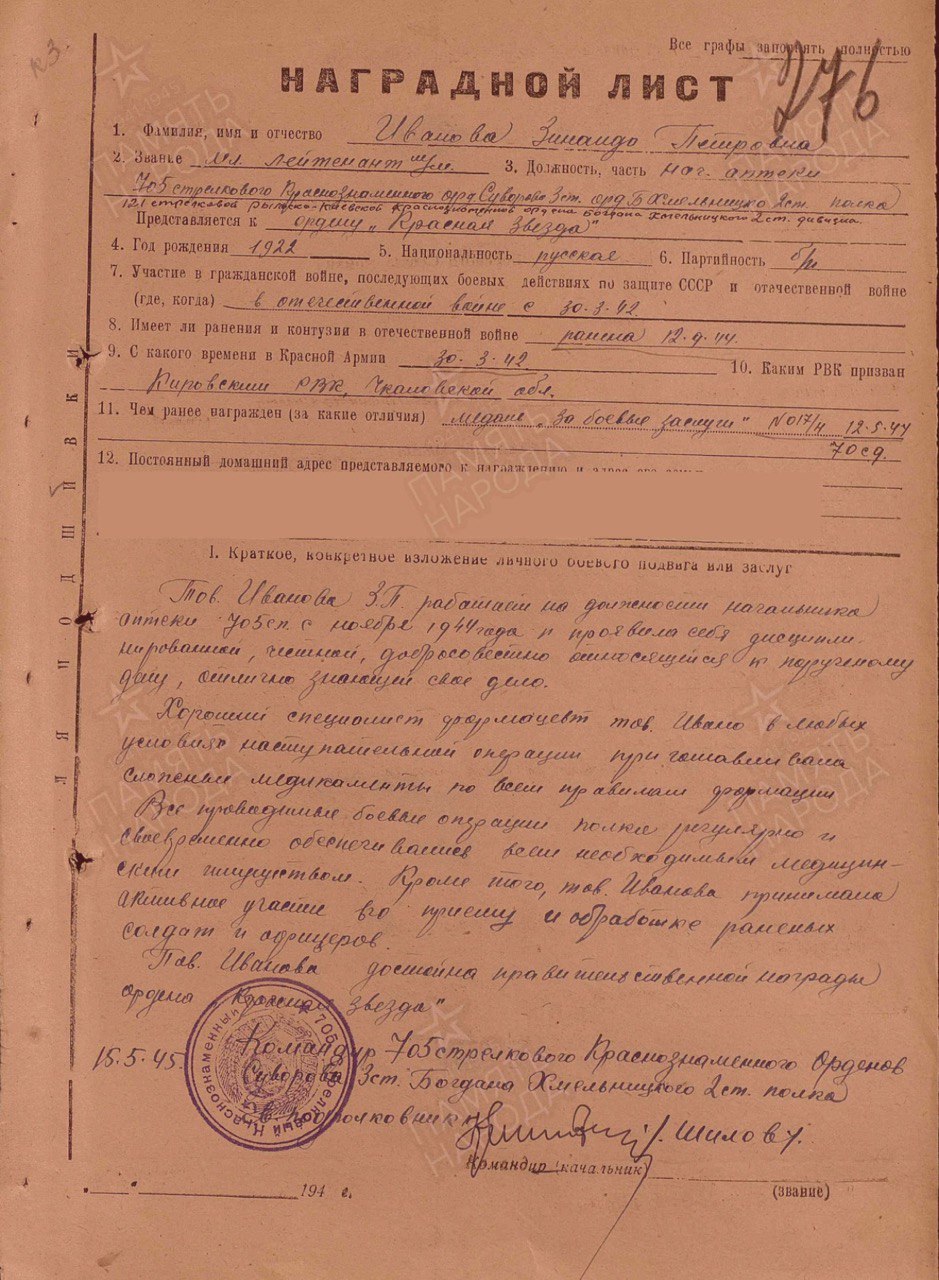 к3.
Все графы заполнять полностью
276
НАГРАДНОЙ ЛИСТ
1. Фамилия, имя и отчество Иванова Зинаидо Петровна
2. Звание мл. лейтенант 3. Должность, часть нач. аптеки
705 стрелкового Краснознаменного орд. Суворова 3 ст. орд. Б. Хмельницко 2 ст. полка
121 стрелковой Рыльско-Киевской Краснознаменной ордена Богдана Хмельницкого 2 ст. дивизиа
Представляется к ордену „Красная звезда"
4. Год рождения 1922 5. Национальность русская 6. Партийность б/п
7. Участие в гражданской войне, последующих боевых действиях по защите СССР и отечественной войне
(где, когда) в отечественной войне с 30.3.42.
8. Имеет ли ранения и контузии в отечественной войне ранена 12.9.44.
9. С какого времени в Красной Армии 30.3.42 10. Каким РВК призван
Кировским РВК, Чкаловской обл.
11. Чем ранее награжден (за какие отличия) медаль „За боевые заслуги" №017/н 12.5.44
70 сд.
12. Постоянный домашний адрес представляемого к награждению и адрес его семьи
I. Краткое, конкретное изложение личного боевого подвига или заслуг
Тов. Иванова З.П. работает на должности начальника
аптеки 705 сп. с ноября 1944 года и проявила себя дисципли-
нированной, честной, добросовестно относящейся к порученому
делу, отлично знающей свое дело.
Хороший специалист формацевт тов. Ивано в любых
условиях наступательной операции приготавливала
сложные медикаменты по всем правилам формации
Все проводимые боевые операции полка регулярно и
своевременно обеспечивались всем необходимым медицин-
ским имуществом. Кроме того, тов. Иванова принимала
активное участи в приему и обработке раненых
солдат и офицеров.
Тов. Иванова достойна правительственной награды
ордена „Красная звезда"
15.5.45. Командир 705 стрелкового Краснознаменного Орденов
Суворова 3 ст. Богдана Хмельницкого 2 ст. полка
подполковник / Шилов /.
Командир (начальник)
„ " 194 г. (звание)
ЛЯ ПОДШИВКИ
ПАМЯТЬ НАРОДА